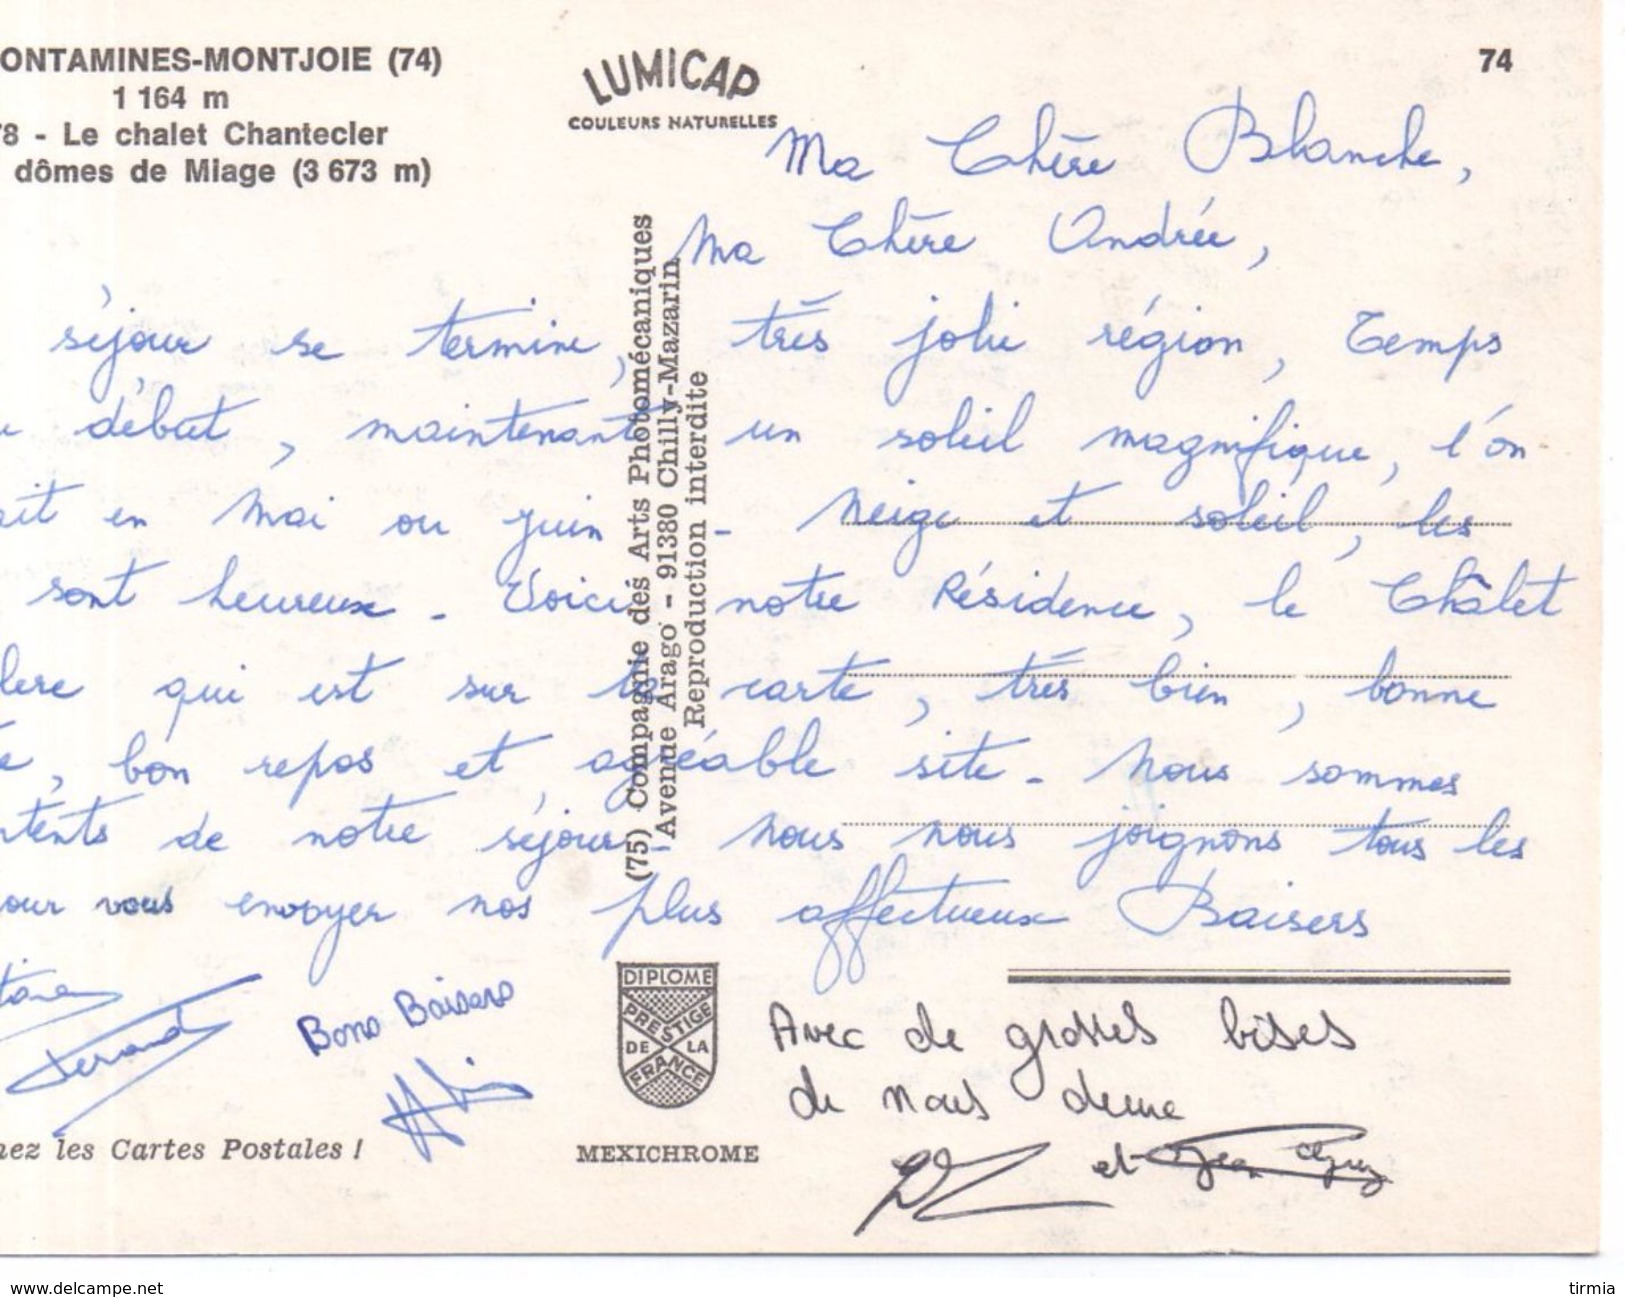 ONTAMINES-MONTJOIE (74)
1 164 m
78 - Le chalet Chantecler
dômes de Miage (3 673 m)
LUMICAP
COULEURS NATURELLES
74
Ma Chère Blanche,
Ma Chère Andrée,
séjour se termine, très jolie région, Temps
début, maintenant un soleil magnifique, l'on
ait en Mai ou juin - Neige et soleil, les
sont heureux - Voici notre Résidence, le Châlet
lere qui est sur la carte, très bien, bonne
bon repos et agréable site - Nous sommes
ntents de notre séjour - Nous nous joignons tous les
our vous envoyer nos plus affectueux Baisers
Bons Baisers
Avec de grosses bises
de nous deux
et Jean
(75) Compagnie des Arts Photomécaniques
Avenue Arago - 91380 Chilly-Mazarin
Reproduction interdite
DIPLOME
PRESTIGE
DE LA
FRANCE
MEXICHROME
nez les Cartes Postales !
www.delcampe.net
tirmia